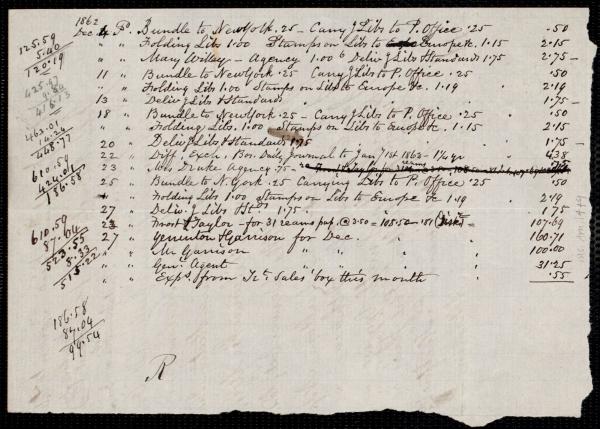 1862
Dec 4 Pd Bundle to New York .25 - Carry'g Libs to P. Office .25 .50
" " Folding Libs 1.00 Stamps on Libs to Europe &c. 1.15 2.15
" " Mary Willey - Agency 1.00 Deliv'g Libs & Standards 1.75 2.75
11 " Bundle to New York .25 Carry'g Libs to P. Office .25 .50
" " Folding Libs 1.00 Stamps on Libs to Europe &c 1.19 2.19
13 " Deliv'g Libs & Standards 1.75
18 " Bundle to New York .25 - Carry'g Libs to P. Office .25 .50
" " Folding Libs. 1.00 Stamps on Libs to Europe &c 1.15 2.15
20 " Deliv'g Libs & Standards 1.75 1.75
22 " Diff. Exch. Bos. Daily Journal to Jany 1st 1863 - 1/4 yr 4.38
23 " Mrs Drake Agency .75 .75
25 " Bundle to N. York .25 Carrying Libs to P. Office .25 .50
" " Folding Libs 1.00 Stamps on Libs to Europe &c 1.19 2.19
27 " Deliv'g Libs & Stds 1.75 1.75
23 " Frost & Taylor - for 31 reams pap. @ 3.50 = 108.50 - .81 107.69
27 " Yerrinton & Garrison for Dec. 160.71
" " Mr Garrison " " 100.00
" " Genl Agent " " 31.25
" " Exps from Frt Sales' box this month .55
125.59
5.40
120.19
463.01
14.24
448.77
610.59
424.01
186.58
610.59
87.04
523.55
8.33
515.22
186.58
87.04
99.54
R